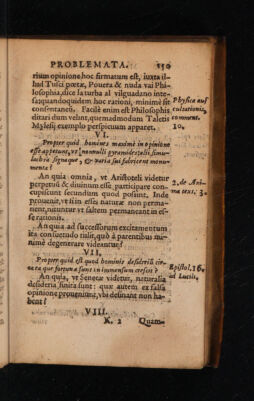 PROBLEMATA. 150
rium opinione, hoc firmatum est, iuxta il-
lud Tusci poetæ, Pouera & nuda vai Phi-
losophia, dice la turba al vil guadano inte-
sa, quandoquidem hoc rationi, minimè sit
consentaneũ. Facilè enim est Philosophis
ditari dum velint, quemadmodum Taletis
Mylesij exemplo perspicuum apparet.
Physicæ aus
cultationis,
comment.
10.
VI.
Propter quid homines maximè in opinione
esse appetunt, vt nonnulli pyramides telis, simu-
lachra signaque, & varia sui fabricent monu-
menta?
An quia omnia, vt Aristoteli videtur
perpetuũ & diuinum esse participare con-
cupiscunt secundum quod possunt. Inde
propterea, vt si in essei naturæ non perma-
nent, nituntur vt saltem permaneant in es-
se rationis.
2. de Ani-
ma text. 3.
An quia ad successorum excitamentum
ita consuetudo tralit, quò à parentibus mi-
nimè degenerare videantur?
VII.
Propter quid est quod hominis desideria cir-
ca ea quæ fortunæ sunt in immensum crescãt?
An quia, vt Senecæ videtur, naturalia
desideria finita sunt: quæ autem ex falsa
opinione proueniunt, vbi desinant non ha-
bent?
Epistol. 16.
ad Lucill.
VIII.
K 2 Quam-